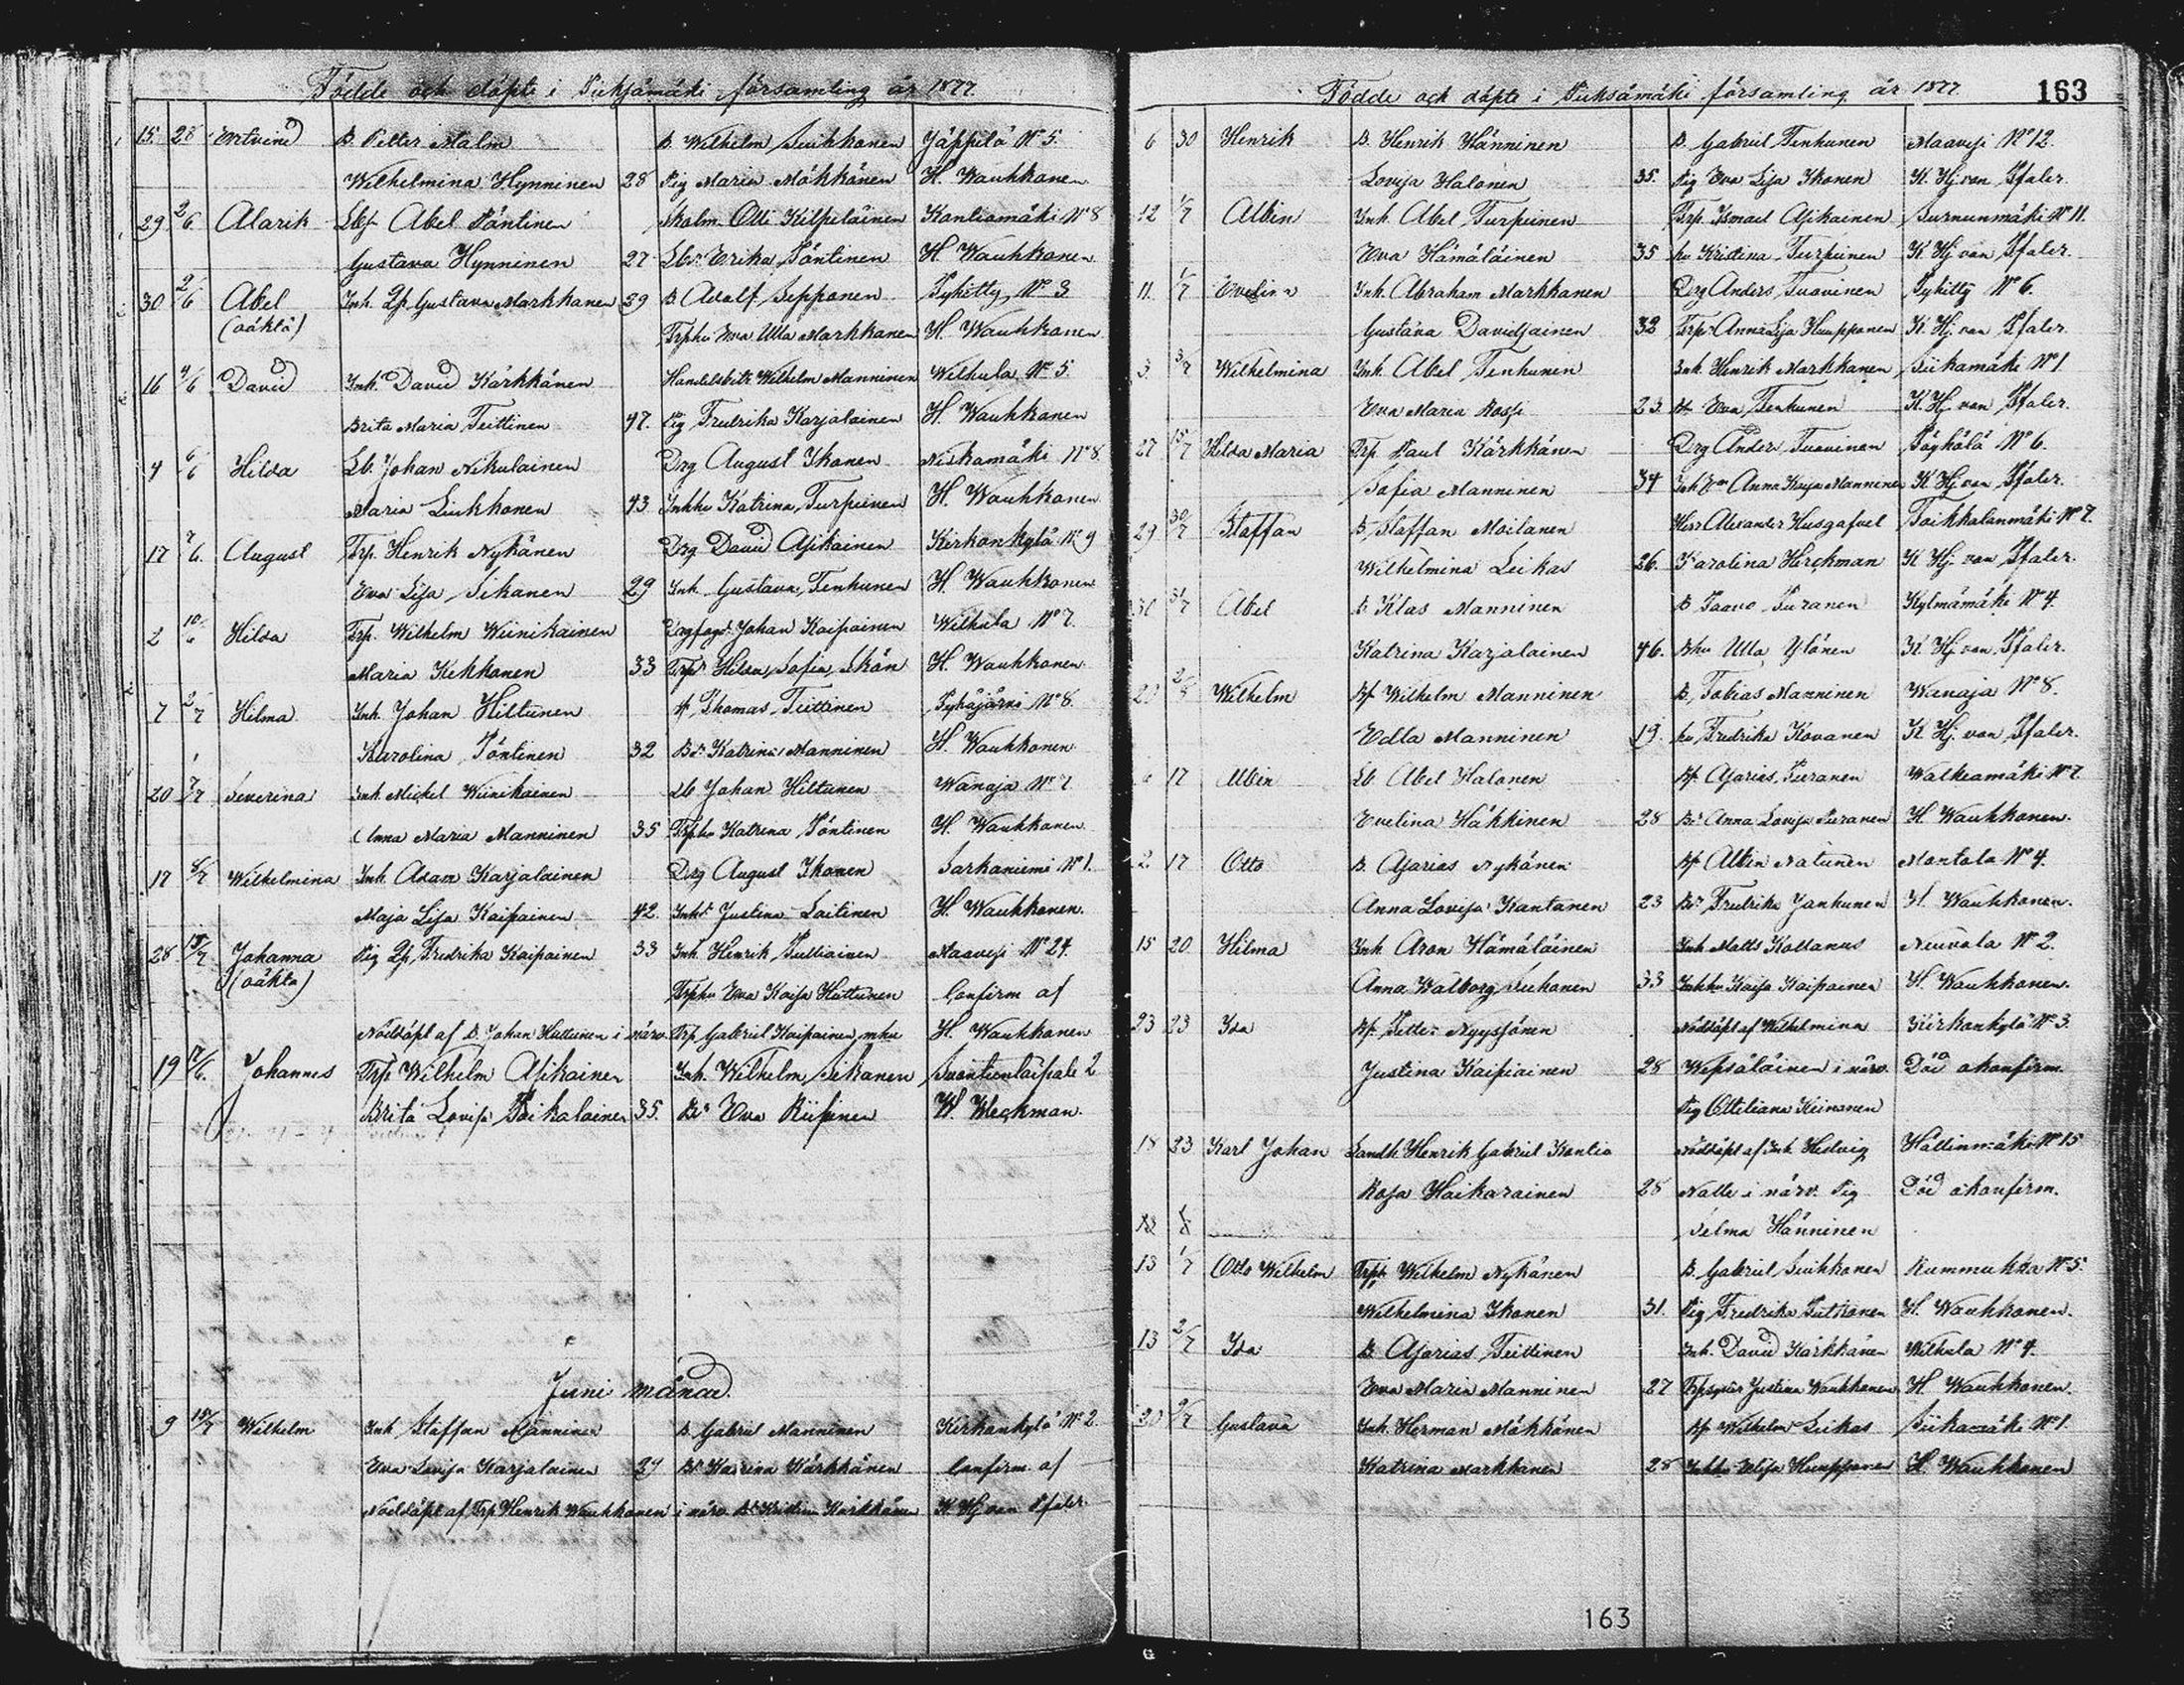 Födde och döpte i Pieksämäki församling år 1877.
15. 28 B. Petter Malm B. Wilhelm Siikkonen Jäppilä No 5.
Wilhelmina Hynninen 28 Pig Maria Mökkönen H. Wauhkonen
29 2/6 Alarik Lbf Abel Pöntinen Skolm. Olli Kilpeläinen Kontiomäki No 8
Gustava Hynninen 27 Lbdr Erika Pöntinen H. Wauhkonen
30 2/6 Abel Inh. Qp. Gustava Markkanen 29 B. Adolf Sepponen Pyhitty No 3
(oäkta) Trphu Eva Ulla Markkanen H. Wauhkonen
16 4/6 David Inh. David Kärkkänen Handelsbitr. Wilhelm Manninen Wilhula No 5.
Brita Maria Teittinen 47. Pig Fredrika Karjalainen H. Wauhkonen
4 6/6 Hilda Lb. Johan Nikulainen Drg August Ikonen Niskamäki No 8
Maria Liukkonen 43 Inhhu Katrina Turpeinen H. Wauhkonen
17 7/6. August Trp. Henrik Nykänen Drg David Asikainen Kirkonkylä No 9
Eva Lisa Sikanen 29 Inh. Gustava Tenhunen H. Wauhkonen
2 10/6 Hilda Trp. Wilhelm Wiinikainen Johan Kaipainen Wilhula No 7.
Maria Kekkonen 33 Hilda Sofia Skön H. Wauhkonen
7 2/7 Hilma Inh. Johan Hiltunen Thomas Teittinen Pyhäjärvi No 8.
Karolina Pöntinen 32 Bdr Katrina Manninen H. Wauhkonen
20 7/7 Severina Inh. Mickel Wiinikainen Lb Johan Hiltunen Wanaja No 7
Anna Maria Manninen 35 Trphu Katrina Pöntinen H. Wauhkonen
17 8/7 Wilhelmina Inh. Adam Karjalainen Drg August Ikonen Sarkaniemi No 1.
Maja Lisa Kaipainen 42. Inhdr Justina Laitinen H. Wauhkonen.
28 15/7 Johanna Pig Qp. Fredrika Kaipainen 33 Inh. Henrik Pulliainen Maavesi No 24.
(oäkta) Trphu Eva Kaisa Huttunen Confirm af
Nöddöpt af B. Johan Huttunen i närv. Trp Gabriel Kaipainen mhu H. Wauhkonen
19 17/6. Johannes Trp Wilhelm Asikainen Inh. Wilhelm Sikanen Suontientaipale 2
Brita Lovisa Poikalainen 35. Bdr Eva Riipinen W. Weckman.
Juni månad.
9 15/7 Wilhelm Inh Staffan Manninen B. Gabriel Manninen Kirkonkylä No 2.
Eva Lovisa Karjalainen 29 Bdr Katrina Kärkkänen Confirm. af
Nöddöpt af Trp Henrik Wauhkonen i närv. Bdr Kristina Kärkkänen K. Hj. von Pfaler.
Födde och döpte i Pieksämäki församling år 1877. 163
6 30 Henrik B. Henrik Hänninen B. Gabriel Tenhunen Maavesi No 12.
Lovisa Halonen 35. Pig Eva Lisa Ikonen K. Hj. von Pfaler
12 1/7 Albin Inh. Abel Turpeinen Trp. Ismael Asikainen Surnunmäki No 11.
Eva Hämäläinen 35 hu Kristina Turpeinen K. Hj. von Pfaler.
11. 1/7 Evelina Inh. Abraham Markkanen Drg Anders Tuovinen Pyhitty No 6.
Gustava Davidsainen 32 Trpdr Anna Lisa Huupponen K. Hj. von Pfaler.
3 3/7 Wilhelmina Inh. Abel Tenhunen Inh. Henrik Markkanen Siikamäki No 1
Eva Maria Rossi 23. Eva Tenhunen K. Hj. von Pfaler.
27 15/7 Hilda Maria Trp Paul Kärkkänen Drg Anders Tuovinen Pöyhölä No 6.
Sofia Manninen 34 Anna Kaisa Manninen K. Hj. von Pfaler.
29 30/7 Staffan B. Staffan Moilanen Herr Alexander Husgafvel Toikkalanmäki No 7.
Wilhelmina Leikas 26. Karolina Herckman K. Hj. von Pfaler.
30 31/7 Abel B. Klas Manninen B. Paavo Puranen Kylmämäki No 4.
Katrina Karjalainen 46. Bhu Ulla Ylönen K. Hj. von Pfaler.
2/8 Wilhelm Bf Wilhelm Manninen B. Tobias Manninen Wanaja No 8.
Edla Manninen 19. hu Fredrika Kovanen K. Hj. von Pfaler.
17 Albin Lb Abel Halonen Bf. Asarias Puranen Walkeamäki No 7
Evelina Häkkinen 28 Bdr Anna Lovisa Puranen H. Wauhkonen.
2 17 Otto B. Asarias Nykänen Bf. Albin Natunen Montola No 4.
Anna Lovisa Kantanen 23 Bdr Fredrika Janhunen H. Wauhkonen.
15 20 Hilma Inh. Aron Hämäläinen Inh. Matts Kollanus Neuvola No 2.
Anna Walborg Suhonen 33 Inhhu Kaisa Kaipainen H. Wauhkonen.
23 23 Ida Bf. Petter Nyyssönen Nöddöpt af Wilhelmina Kirkonkylä No 3.
Justina Kaipiainen 28 Wepsäläinen i närv. Död okonfirm.
Pig Ottiliana Keinonen
18 23 Karl Johan Landth. Henrik Gabriel Kontio Nöddöpt af Inh. Hedvig Hällinmäki No 15
Rosa Haikarainen 28 Nalle i närv. Pig Död okonfirm.
Selma Hänninen
13 1/7 Otto Wilhelm Trp Wilhelm Nykänen B. Gabriel Siikkonen Kummukka No 5.
Wilhelmina Ikonen 31. Pig Fredrika Putkonen H. Wauhkonen.
13 2/7 Ida B. Asarias Teittinen Inh. David Kärkkänen Wilhula No 4.
Eva Maria Manninen 27 Justina Wauhkonen H. Wauhkonen.
20 2/7 Gustava Inh. Herman Mökkönen Bf Wilhelm Leikas Siikamäki No 1.
Katrina Markkanen 28 Inhhu Huupponen H. Wauhkonen
163